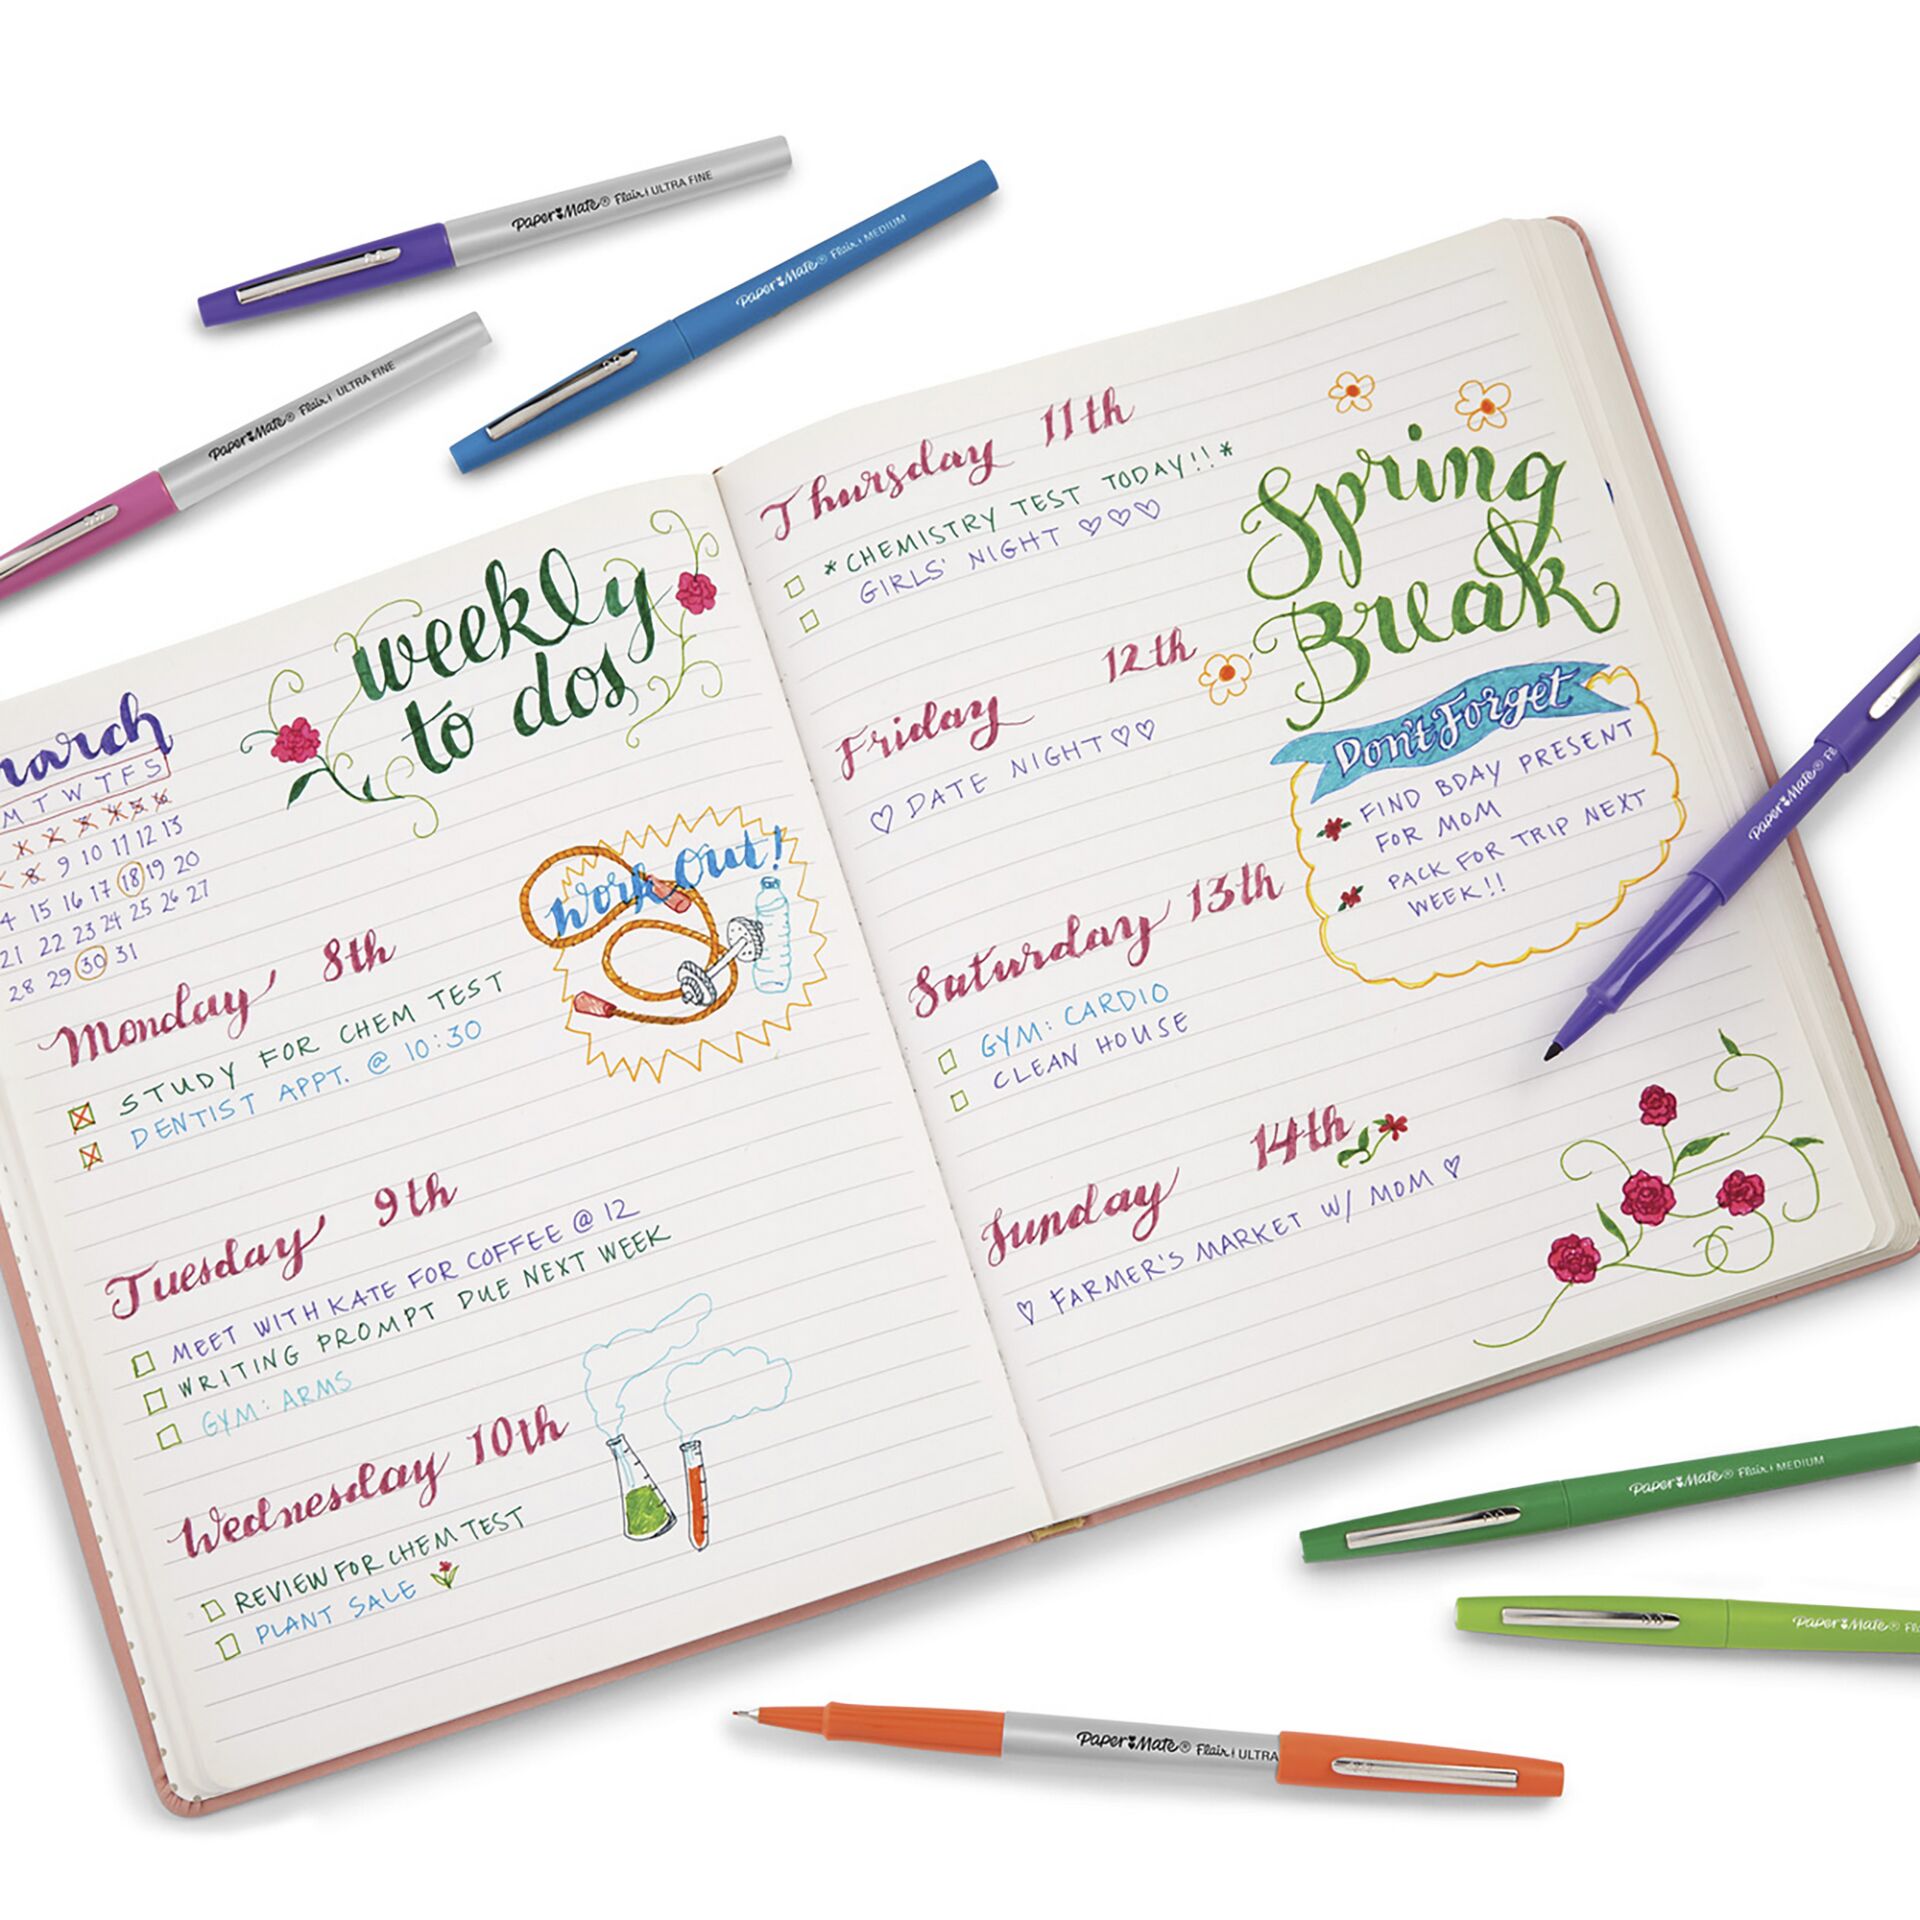 Paper Mate® Flair | ULTRA FINE
Paper Mate® Flair | MEDIUM
Paper Mate® Flair | ULTRA FINE
weekly
to dos
M T W T F S
1 2 3 4 5 6
8 9 10 11 12 13
15 16 17 18 19 20
21 22 23 24 25 26 27
28 29 30 31
Work Out!
Monday 8th
STUDY FOR CHEM TEST
DENTIST APPT. @ 10:30
Tuesday 9th
MEET WITH KATE FOR COFFEE @ 12
WRITING PROMPT DUE NEXT WEEK
GYM: ARMS
Wednesday 10th
REVIEW FOR CHEM TEST
PLANT SALE
Thursday 11th
*CHEMISTRY TEST TODAY!!*
GIRLS' NIGHT ♡♡♡
Spring
Break
Friday 12th
♡ DATE NIGHT ♡♡
Don't Forget
FIND BDAY PRESENT
FOR MOM
PACK FOR TRIP NEXT
WEEK!!
Saturday 13th
GYM: CARDIO
CLEAN HOUSE
Sunday 14th
♡ FARMER'S MARKET W/ MOM ♡
Paper Mate®
Paper Mate® Flair | MEDIUM
Paper Mate®
Paper Mate® Flair | ULTRA